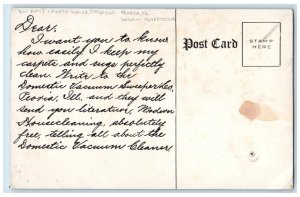 Dear,
I want you to know
how easily I keep my
carpets and rugs perfectly
clean. Write to the
Domestic Vacuum Sweeper Co.,
Peoria, Ill. and they will
send you literature, Modern
Housecleaning, absolutely
free, telling all about the
Domestic Vacuum Cleaner
Post Card
STAMP
HERE